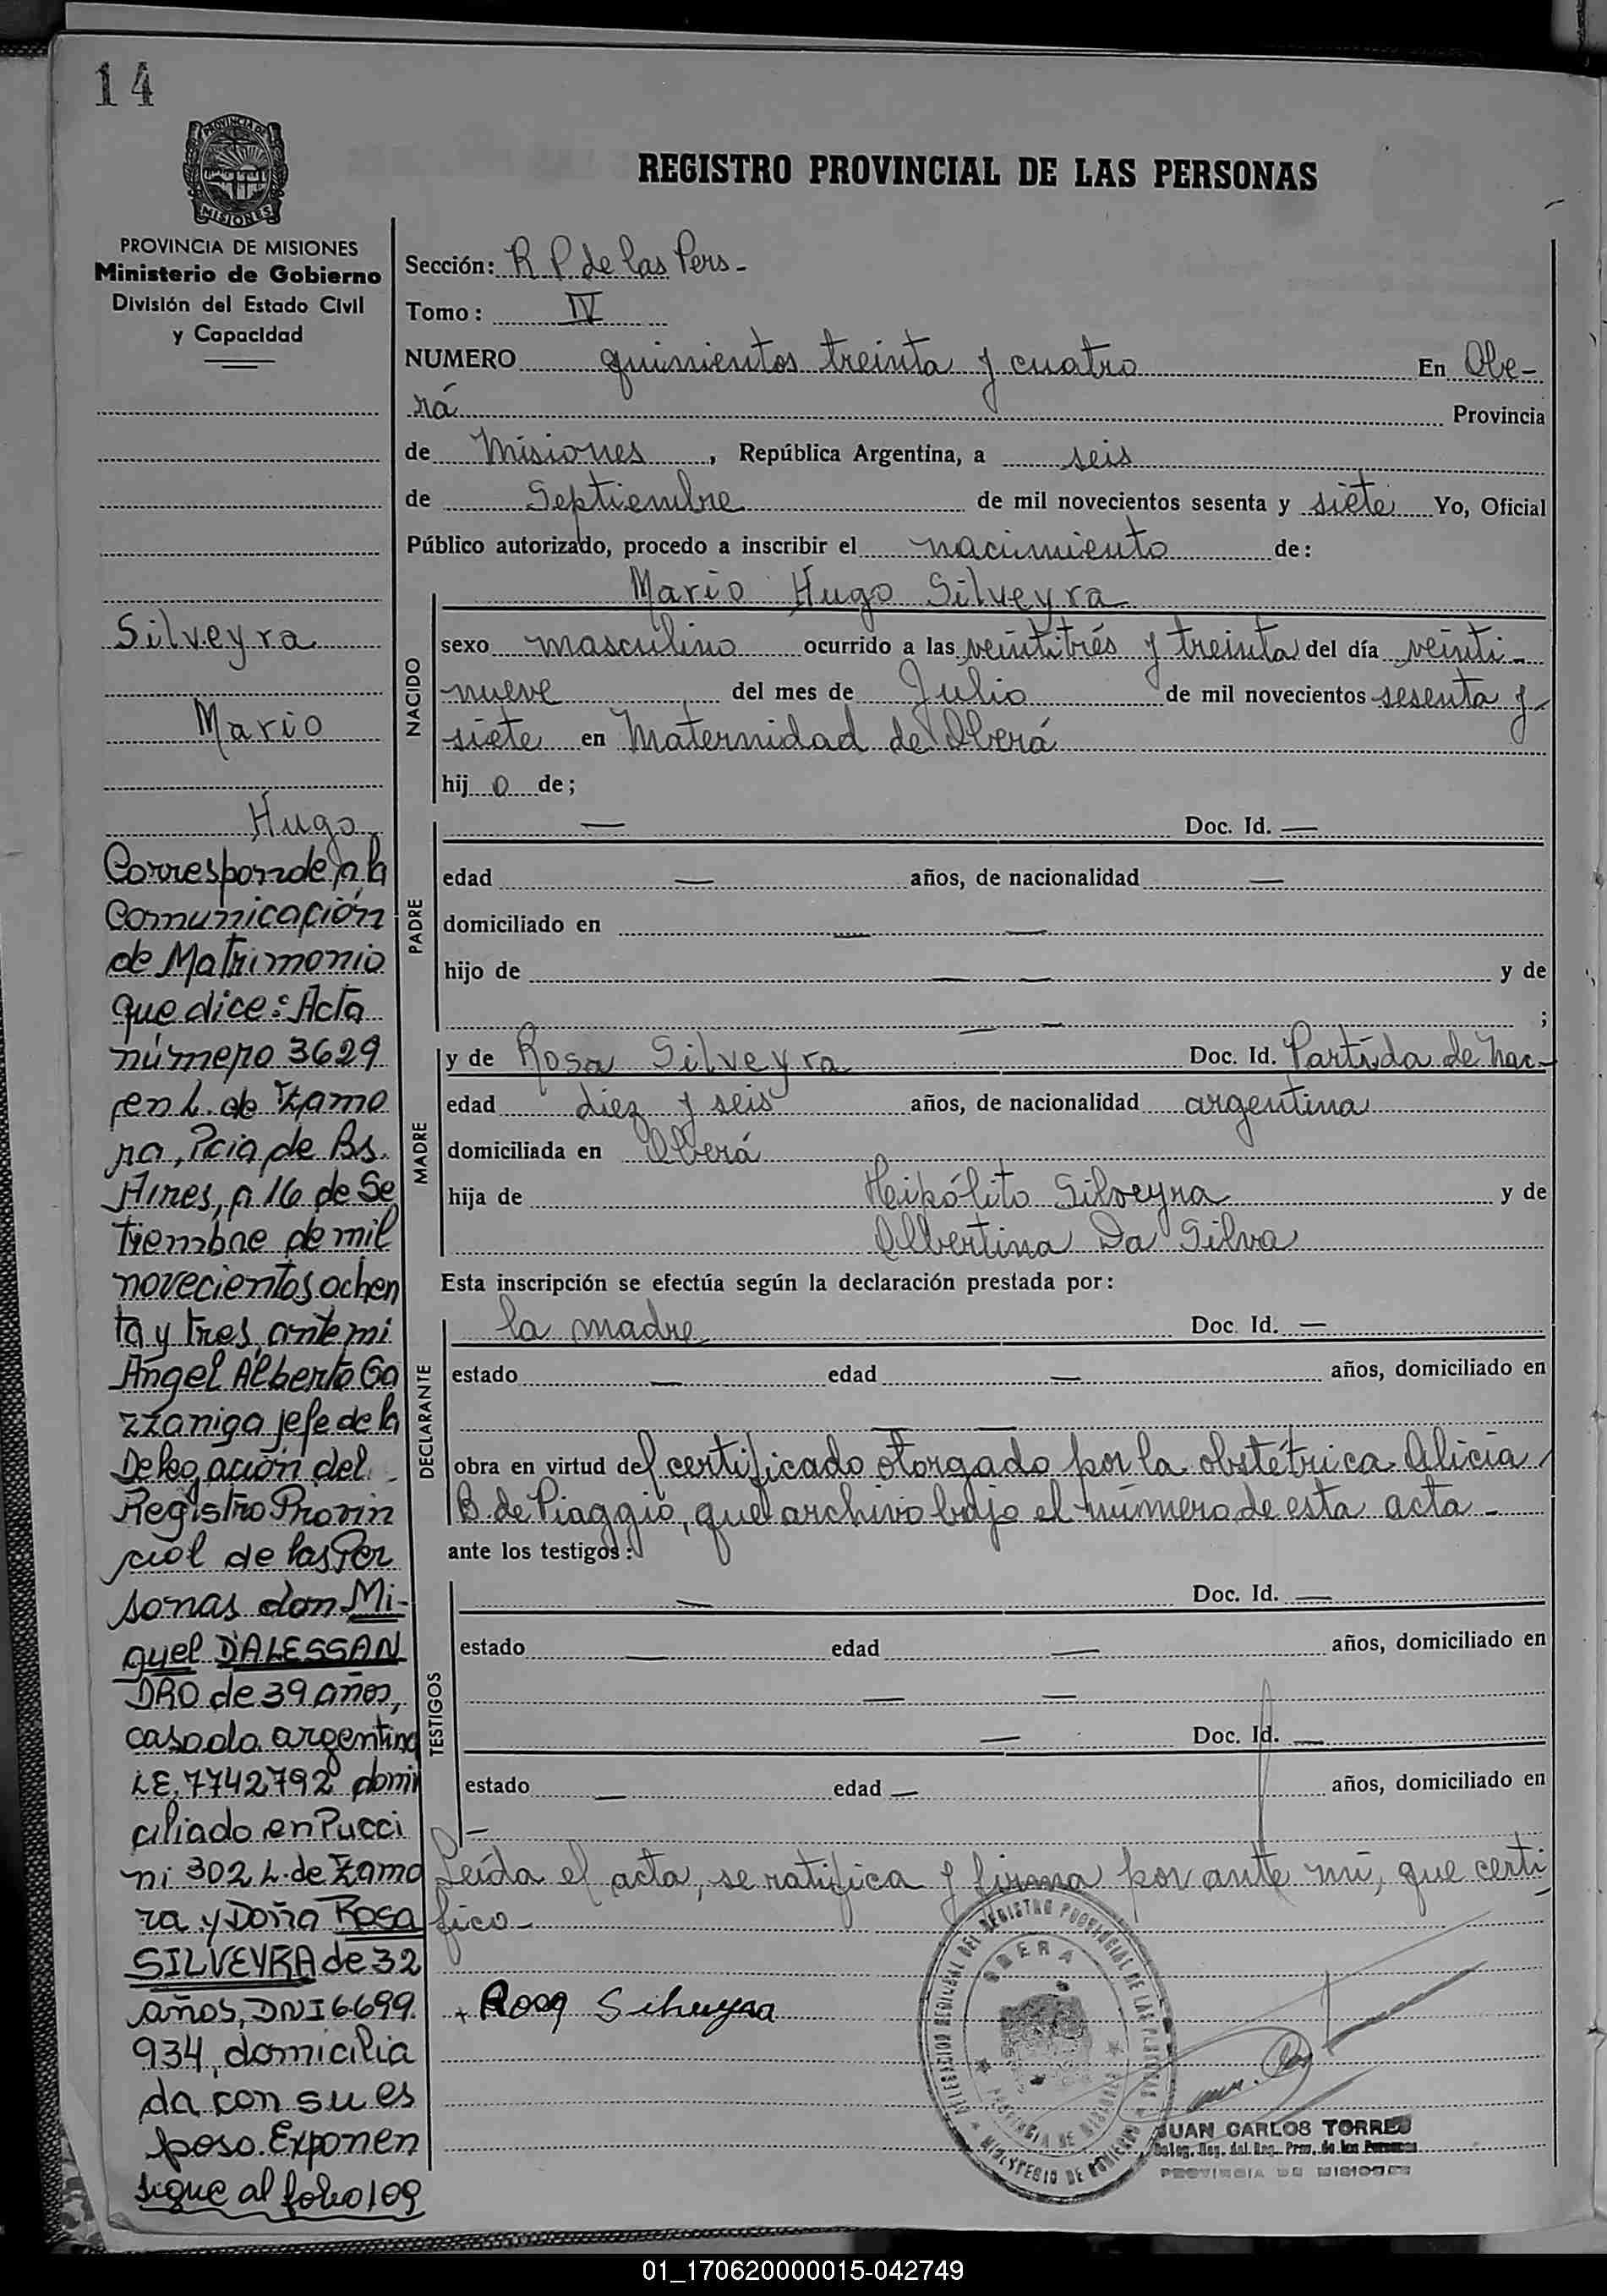 14
PROVINCIA DE
MISIONES
REGISTRO PROVINCIAL DE LAS PERSONAS
PROVINCIA DE MISIONES
Ministerio de Gobierno
División del Estado Civil
y Capacidad
Silveyra
Mario
Hugo
Corresponde a la
Comunicación
de Matrimonio
que dice: Acta
número 3629
en L. de Zamo
ra, Pcia de Bs.
Aires, a 16 de Se
tiembre de mil
novecientos ochen
ta y tres, ante mi
Angel Alberto Ga
zzaniga jefe de la
Delegación del
Registro Provin
cial de las Per
sonas don Mi-
guel D'ALESSAN
DRO de 39 años,
casado argentino
LE. 7742792 domi
ciliado en Pucci
ni 302 L. de Zamo
ra y Doña Rosa
SILVEYRA de 32
años, DNI 6.699.
934, domicilia
da con su es
poso. Exponen
sigue al folio 109
Sección: R P. de las Pers-
Tomo: IV
NUMERO quinientos treinta y cuatro En Obe-
rá Provincia
de Misiones, República Argentina, a seis
de Septiembre de mil novecientos sesenta y siete Yo, Oficial
Público autorizado, procedo a inscribir el nacimiento de:
NACIDO
Mario Hugo Silveyra
sexo masculino ocurrido a las veintitrés y treinta del día veinti-
nueve del mes de Julio de mil novecientos sesenta y
siete en Maternidad de Oberá
hij o de;
PADRE
— Doc. Id. —
edad — años, de nacionalidad —
domiciliado en — —
hijo de — — y de
— — ;
MADRE
y de Rosa Silveyra Doc. Id. Partida de Nac-
edad diez y seis años, de nacionalidad argentina
domiciliada en Oberá
hija de Heipólito Silveyra y de
Albertina Da Silva
Esta inscripción se efectúa según la declaración prestada por:
DECLARANTE
la madre Doc. Id. —
estado — edad — años, domiciliado en
— —
obra en virtud del certificado otorgado por la obstétrica Alicia
B. de Piaggio, que archivo bajo el número de esta acta -
ante los testigos:
TESTIGOS
— Doc. Id. —
estado — edad — años, domiciliado en
— —
— Doc. Id. —
estado — edad — años, domiciliado en
—
Leída el acta, se ratifica y firma por ante mi, que certi
fico-
+ Rosa Silveyra
DELEGACION REGIONAL DEL REGISTRO PROVINCIAL DE LAS PERSONAS
OBERA
PROVINCIA DE MISIONES
MINISTERIO DE GOBIERNO
JUAN CARLOS TORRES
Deleg. Reg. del Reg. Prov. de las Personas
PROVINCIA DE MISIONES
01_170620000015-042749